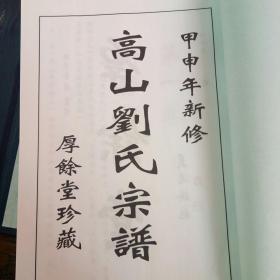 甲申年新修
高山劉氏宗譜
厚餘堂珍藏